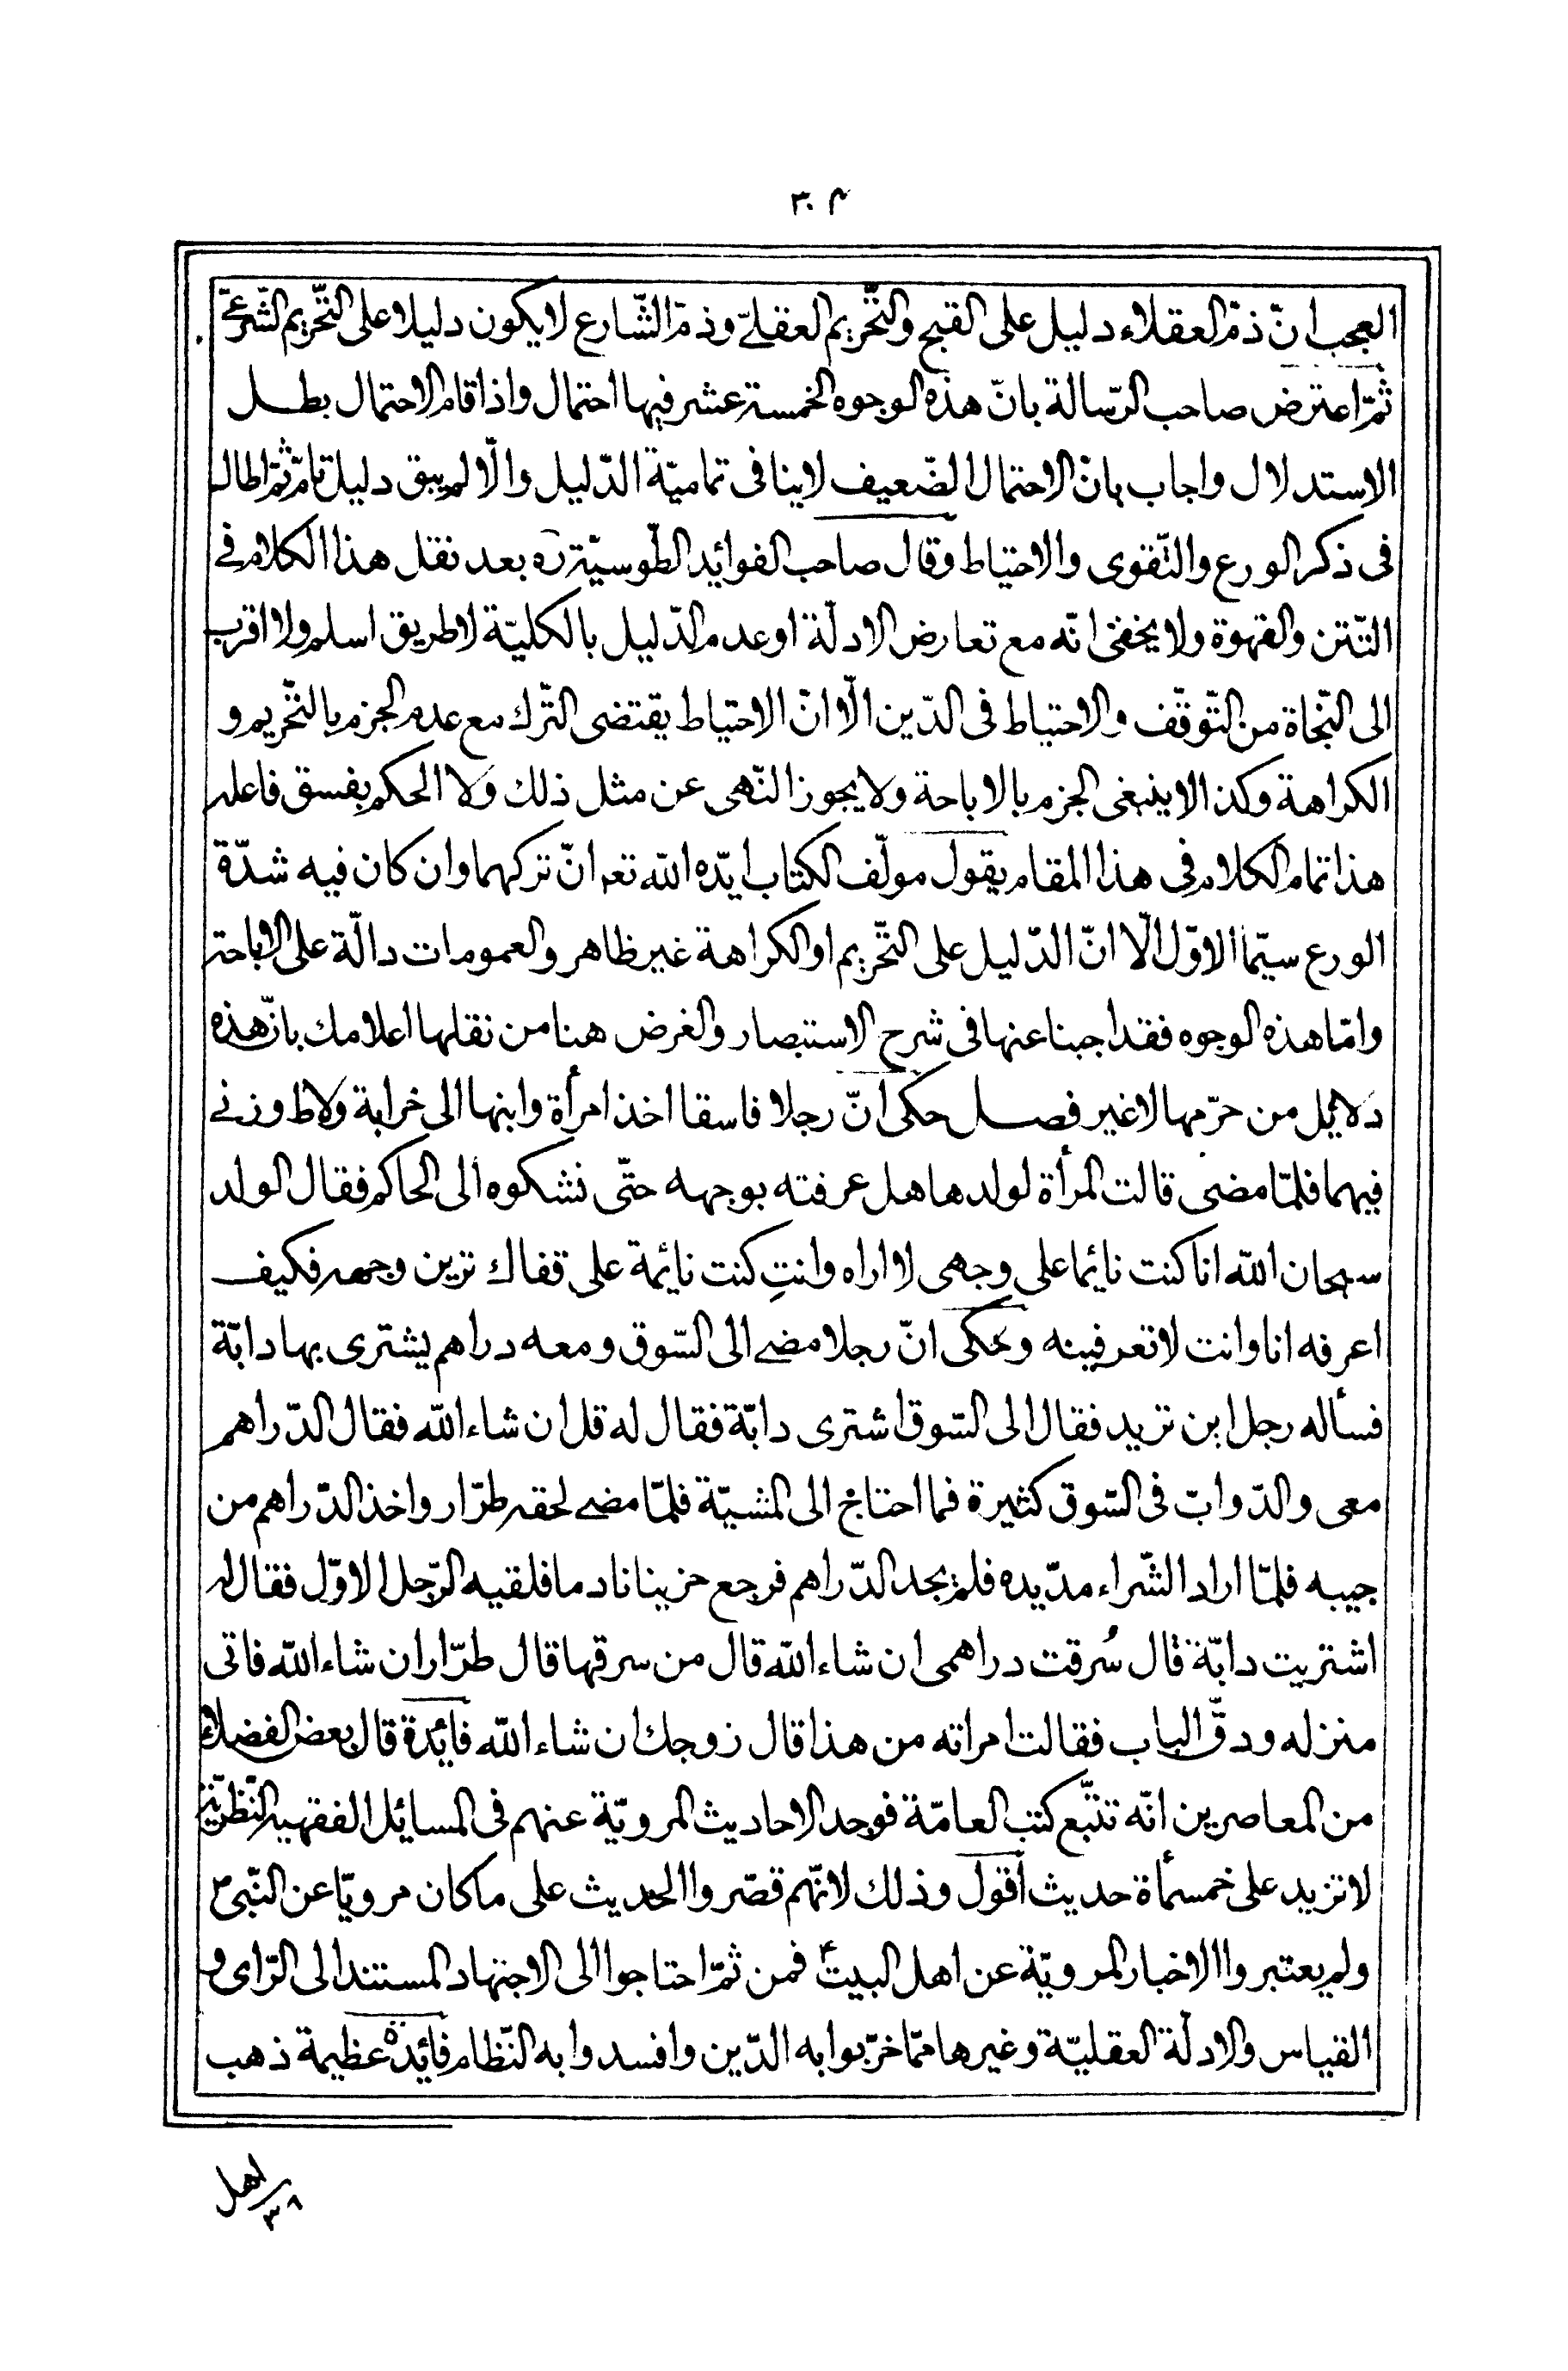 ٣٠٤
العجب انّ ذمّ العقلاء دليل على القبح والتّحريم العقلىّ وذمّ الشّارع لايكون دليلا على التّحريم الشّرعىّ
ثمّ اعترض صاحب الرّسالة بانّ هذه الوجوه الخمسة عشر فيها احتمال واذا قام الاحتمال بطل
الاستدلال واجاب بانّ الاحتمال الضّعيف لاينافى تماميّة الدّليل والّا لم يبق دليل تامّ ثمّ اطال
فى ذكر الورع والتّقوى والاحتياط وقال صاحب الفوائد الطّوسيّة ره بعد نقل هذا الكلام فى
التّتن والقهوة ولايخفى انّه مع تعارض الادلّة اوعدم الدّليل بالكليّة لاطريق اسلم ولا اقرب
الى النّجاة من التّوقّف والاحتياط فى الدّين الّا انّ الاحتياط يقتضى التّرك مع عدم الجزم بالتّحريم و
الكراهة وكذا لاينبغى الجزم بالاباحة ولايجوز النّهى عن مثل ذلك ولا الحكم بفسق فاعله
هذا تمام الكلام فى هذا المقام يقول مولّف الكتاب ايّده الله تعه انّ تركهما وان كان فيه شدّة
الورع سيّما الاوّل الّا انّ الدّليل على التّحريم او الكراهة غير ظاهر والعمومات دالّة على الاباحة
وامّا هذه الوجوه فقد اجبنا عنها فى شرح الاستبصار والغرض هنا من نقلها اعلامك بانّ هذه
دلائل من حرّمها لاغير فصل حكى انّ رجلا فاسقا اخذ امرأة وابنها الى خرابة ولاط وزنى
فيهما فلمّا مضى قالت المرأة لولدها هل عرفته بوجهه حتّى نشكوه الى الحاكم فقال الولد
سبحان الله انا كنت نائما على وجهى لا اراه وانتِ كنت نائمة على قفاك ترين وجهه فكيف
اعرفه انا وانت لاتعرفينه وحكى انّ رجلا مضى الى السّوق ومعه دراهم يشترى بها دابّة
فسأله رجل اين تريد فقال الى السّوق اشترى دابّة فقال له قل ان شاء الله فقال الدّراهم
معى والدّوابّ فى السّوق كثيرة فما احتاج الى المشيّة فلمّا مضى لحقه طرّار واخذ الدّراهم من
جيبه فلمّا اراد الشّراء مدّ يده فلم يجد الدّراهم فرجع حزينا نادما فلقيه الرّجل الاوّل فقال له
اشتريت دابّة قال سُرقت دراهمى ان شاء الله قال من سرقها قال طرّار ان شاء الله فاتى
منزله ودقّ الباب فقالت امراته من هذا قال زوجك ان شاء الله فائدة قال بعض الفضلاء
من المعاصرين انّه تتبّع كتب العامّة فوجد الاحاديث المرويّة عنهم فى المسائل الفقهيه النّظريّة
لاتزيد على خمسمأة حديث أقول وذلك لانّهم قصّروا الحديث على ماكان مرويّا عن النّبىّ ص
ولم يعتبروا الاخبار المرويّة عن اهل البيت ع فمن ثمّ احتاجوا الى الاجتهاد المستند الى الرّاى و
القياس والادلّة العقليّة وغيرها ممّا خرّبوا به الدّين وافسدوا به النّظام فائدة عظيمة ذهب
اهل
٣٨